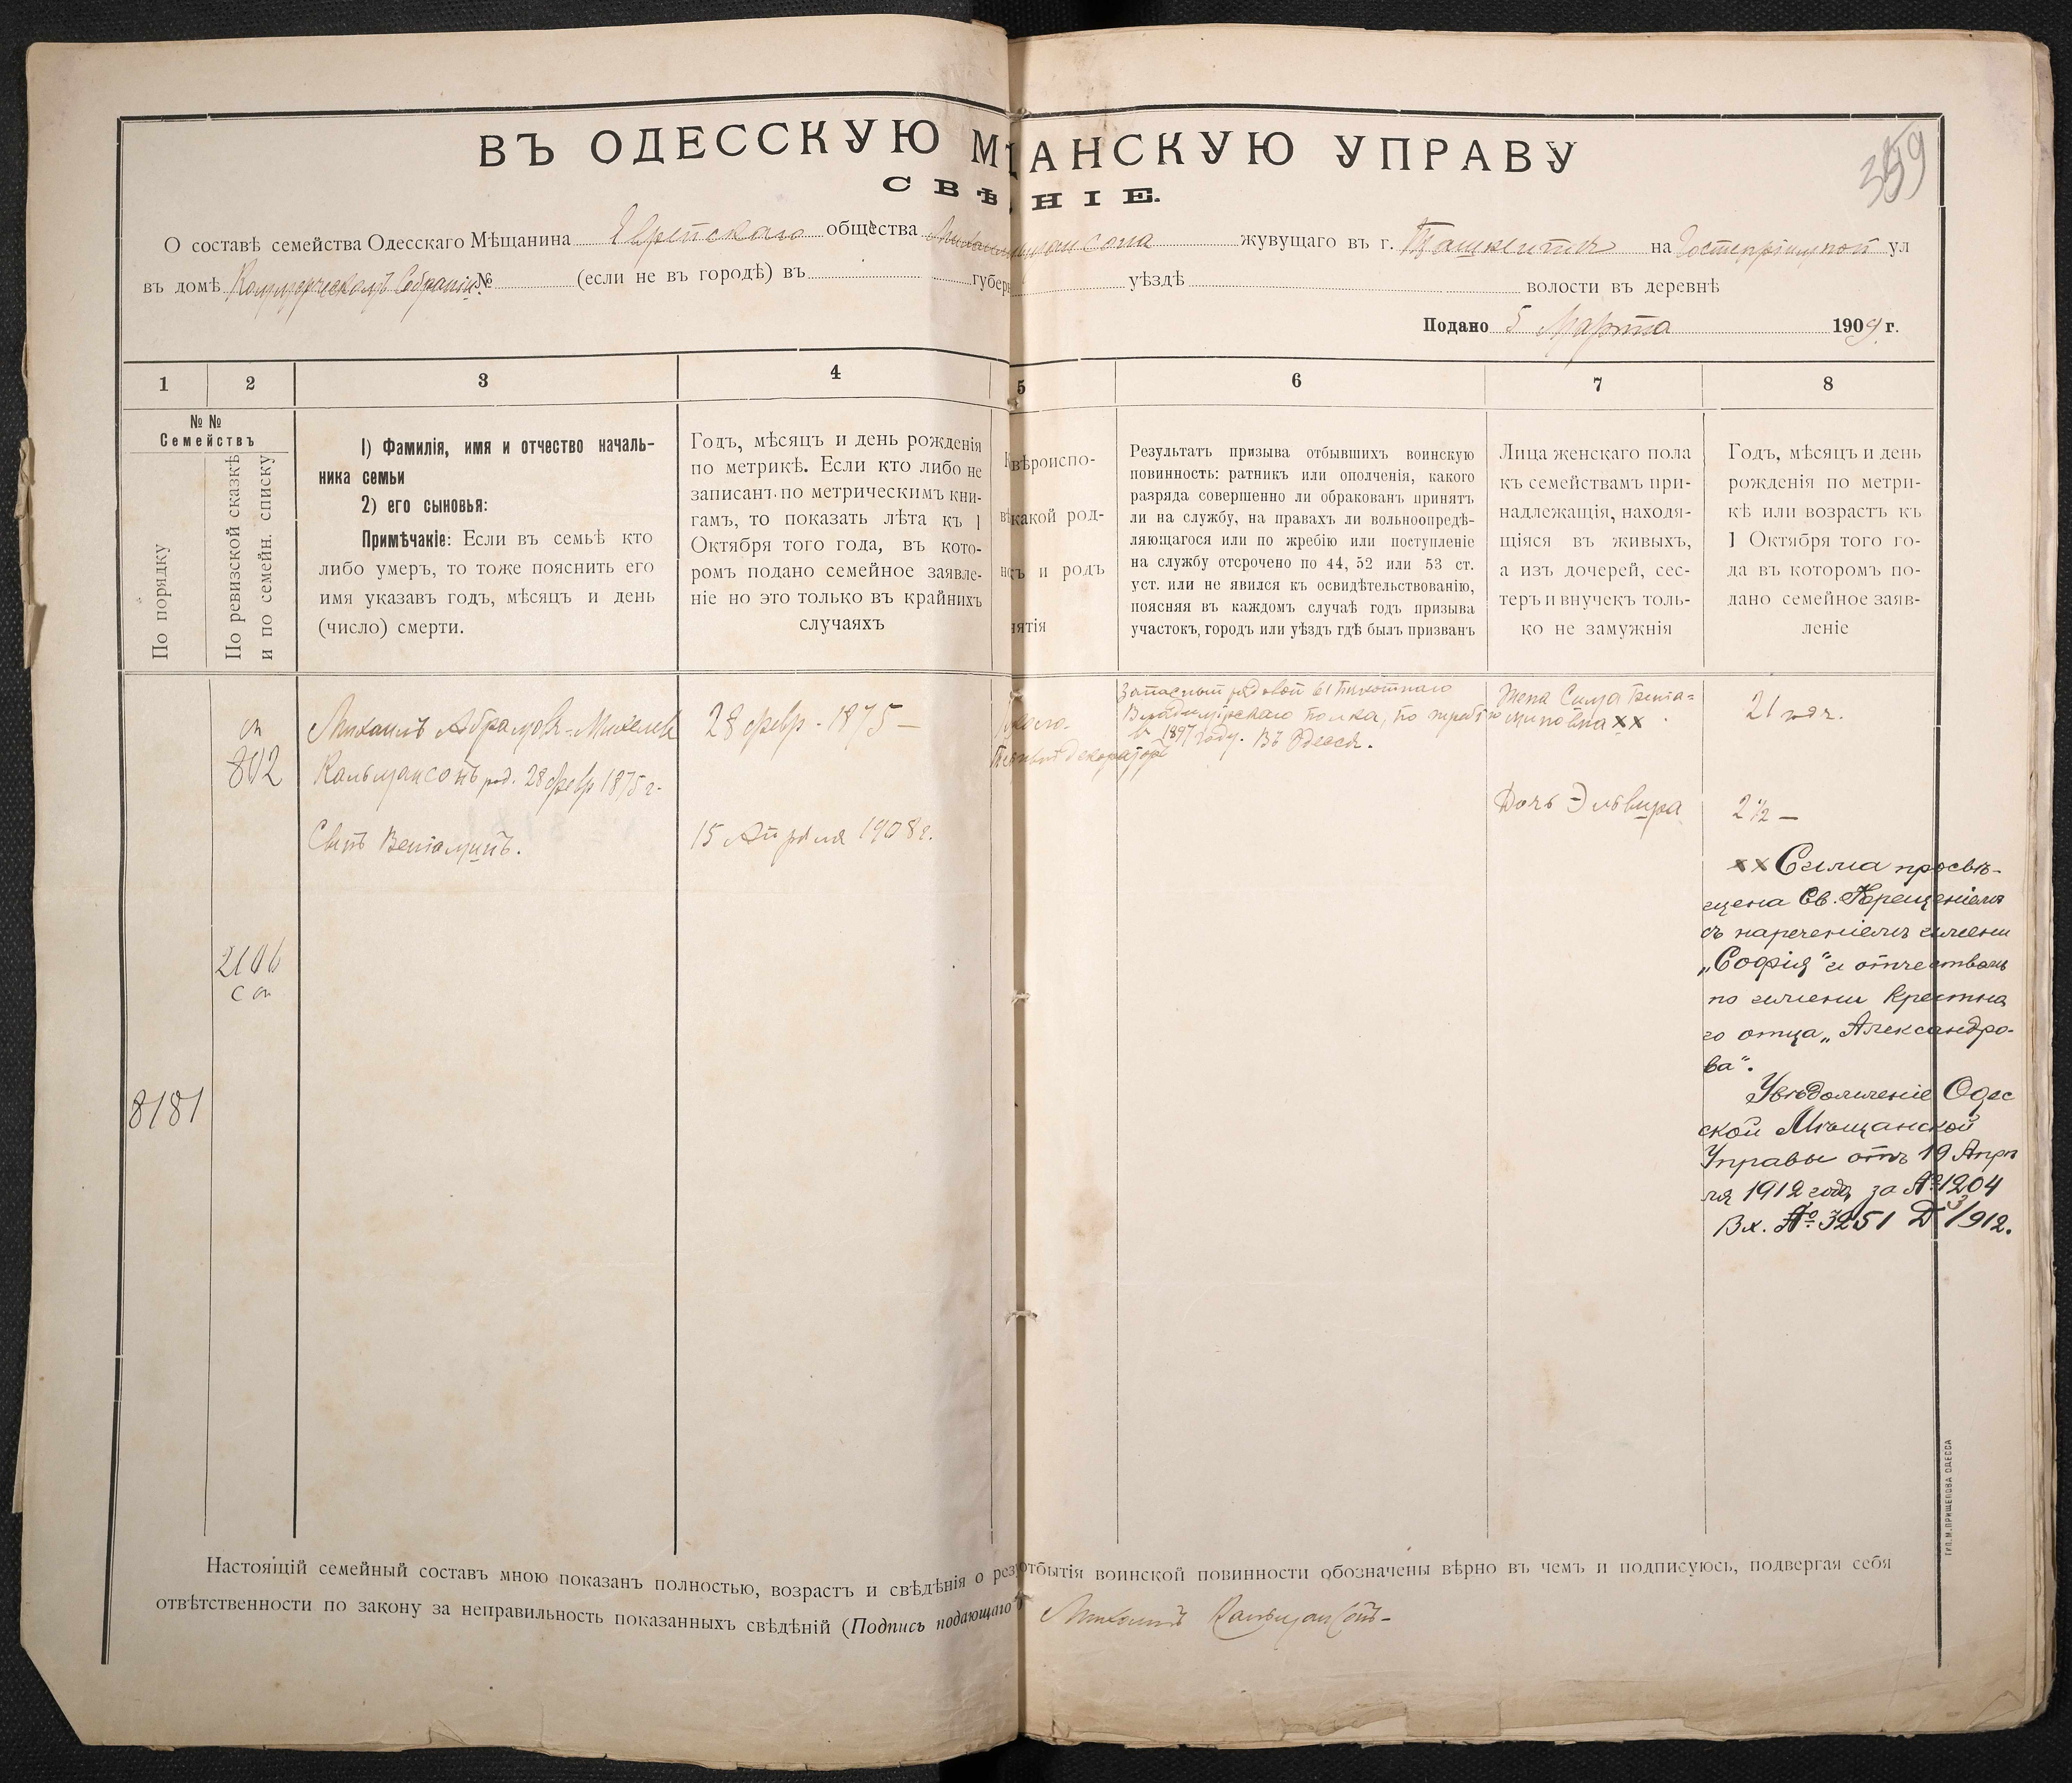 ВЪ ОДЕССКУЮ М ЩАНСКУЮ УПРАВУ
СВѢ НІЕ.
359
О составѣ семейства Одесскаго Мѣщанина Еврейскаго общества Михаила Кальмансона жувущаго въ г. Ташкентѣ на Гостепріимной ул
въ домѣ Коммерческомъ Собраніи № (если не въ городѣ) въ губер уѣздѣ волости въ деревнѣ
Подано 5 Марта 1909 г.
1 2 3 4 5 6 7 8
№ №
Семействъ
По порядку
По ревизской сказкѣ
и по семейн. списку
1) Фамилія, имя и отчество началь-
ника семьи
2) его сыновья:
Примѣчаніе: Если въ семьѣ кто
либо умеръ, то тоже пояснить его
имя указавъ годъ, мѣсяцъ и день
(число) смерти.
Годъ, мѣсяцъ и день рожденія
по метрикѣ. Если кто либо не
записанъ по метрическимъ кни-
гамъ, то показать лѣта къ 1
Октября того года, въ кото-
ромъ подано семейное заявле-
ніе но это только въ крайнихъ
случаяхъ
вѣроиспо-
какой род-
ъ и родъ
нятія
Результатъ призыва отбывшихъ воинскую
повинность: ратникъ или ополченія, какого
разряда совершенно ли обракованъ принятъ
ли на службу, на правахъ ли вольноопредѣ-
ляющагося или по жребію или поступленіе
на службу отсрочено по 44, 52 или 53 ст.
уст. или не явился къ освидѣтельствованію,
поясняя въ каждомъ случаѣ годъ призыва
участокъ, городъ или уѣздъ гдѣ былъ призванъ
Лица женскаго пола
къ семействамъ при-
надлежащія, находя-
щіяся въ живыхъ,
а изъ дочерей, сес-
теръ и внучекъ толь-
ко не замужнія
Годъ, мѣсяцъ и день
рожденія по метри-
кѣ или возрастъ къ
1 Октября того го-
да въ которомъ по-
дано семейное заяв-
леніе
сп
802
Михаилъ Абрамовъ-Михелевъ
Кальмансонъ род. 28 февр 1875 г.
28 февр - 1875 -
декораторъ
Запасный рядовой 61 пихотнаго
Владимірскаго полка, по жребію
въ 1897 году. Въ Одессѣ.
Жена Сима Веніа-
миновна хх
21 годъ.
Дочь Эльвира
2 1/2 —
Сынъ Веніаминъ.
15 Апрѣля 1908 г.
2106
с сп
8181
хх Сима просвѣ-
щена Св. Крещеніемъ
съ нареченіемъ имени
„Софія" и отчествомъ
по имени крестна
го отца „Александро-
ва".
Увѣдомленіе Одес
ской Мѣщанской
Управы отъ 19 Апрѣ
ля 1912 года за № 1204
Вх. № 3251 Д 3/912.
Настоящій семейный составъ мною показанъ полностью, возрастъ и свѣдѣнія о рез отбытія воинской повинности обозначены вѣрно въ чемъ и подписуюсь, подвергая себя
отвѣтственности по закону за неправильность показанныхъ свѣдѣній (Подпись подающаго Михаилъ Кальмансонъ
ТИП. М. ПРИЩЕПОВА ОДЕССА